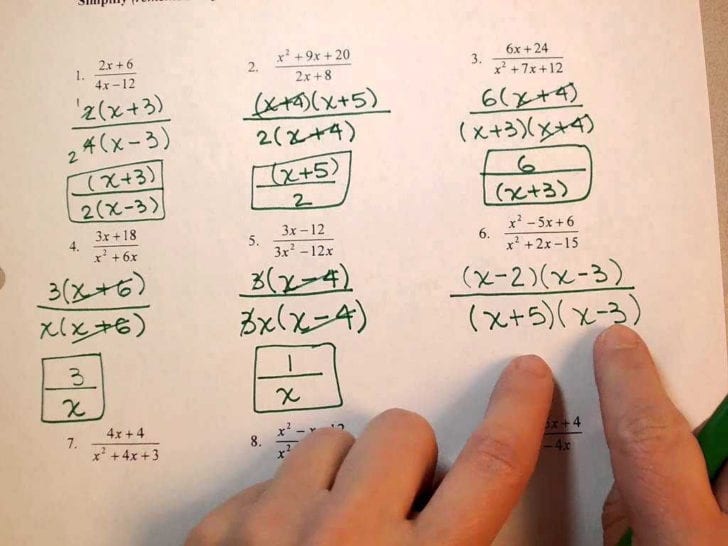 Simplify
1. 2x + 6
4x − 12
1 2(x+3)
2 4(x−3)
(x+3)
2(x−3)
2. x² + 9x + 20
2x + 8
(x+4)(x+5)
2(x+4)
(x+5)
2
3. 6x + 24
x² + 7x + 12
6(x+4)
(x+3)(x+4)
6
(x+3)
4. 3x + 18
x² + 6x
3(x+6)
x(x+6)
3
x
5. 3x − 12
3x² − 12x
3(x−4)
3x(x−4)
1
x
6. x² − 5x + 6
x² + 2x − 15
(x−2)(x−3)
(x+5)(x−3)
7. 4x + 4
x² + 4x + 3
8. x² −
x²
x + 4
− 4x